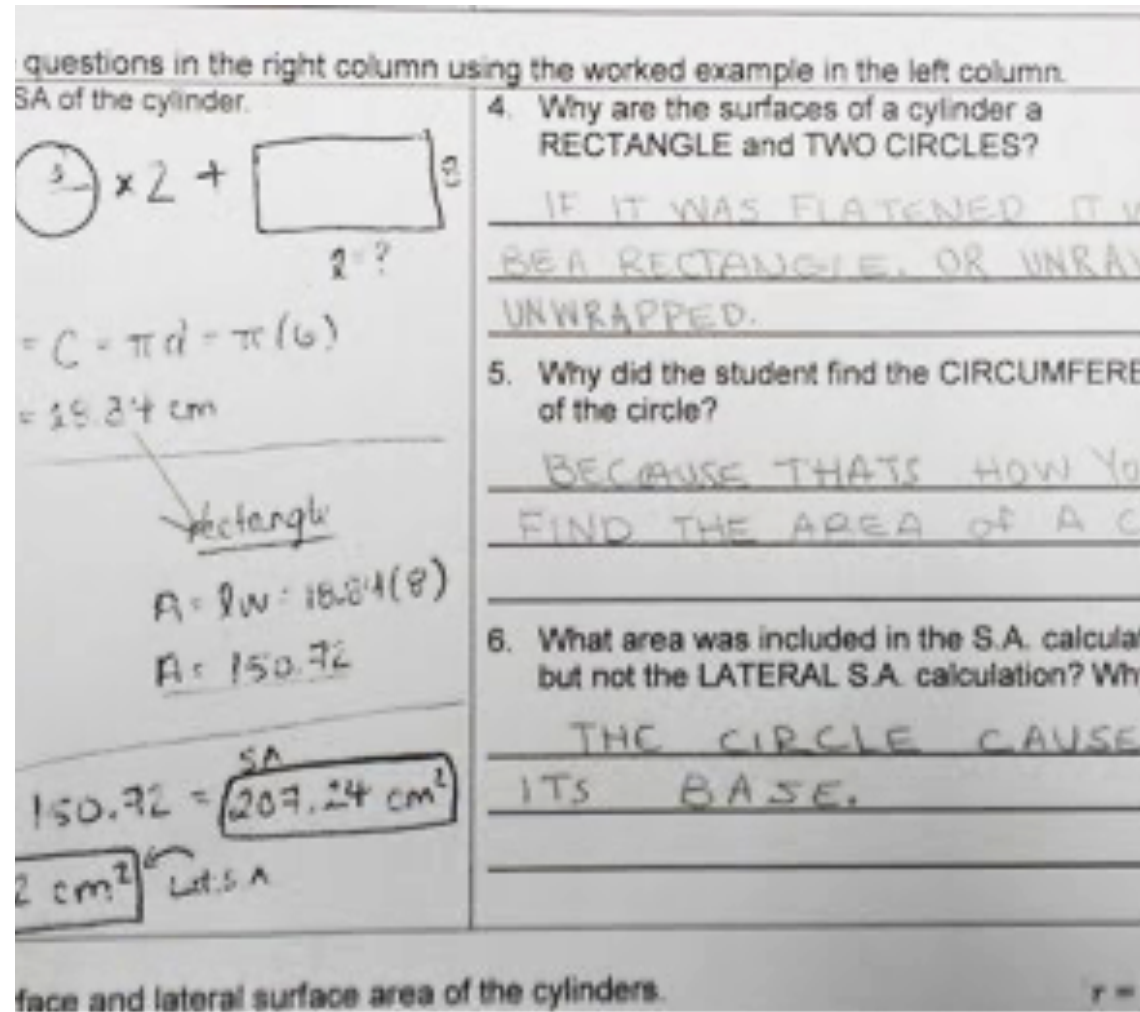 questions in the right column using the worked example in the left column.
SA of the cylinder.
3 × 2 + 8
l = ?
= C = πd = π(6)
= 18.84 cm
rectangle
A = lw = 18.84(8)
A = 150.72
SA
150.72 = 207.24 cm²
2 cm² Lat. S.A
4. Why are the surfaces of a cylinder a
RECTANGLE and TWO CIRCLES?
IF IT WAS FLATENED IT
BE A RECTANGLE. OR UNRA
UNWRAPPED.
5. Why did the student find the CIRCUMFERE
of the circle?
BECAUSE THATS HOW YO
FIND THE AREA OF A C
6. What area was included in the S.A. calcula
but not the LATERAL S.A. calculation? Wh
THE CIRCLE CAUSE
ITS BASE.
face and lateral surface area of the cylinders.
r =